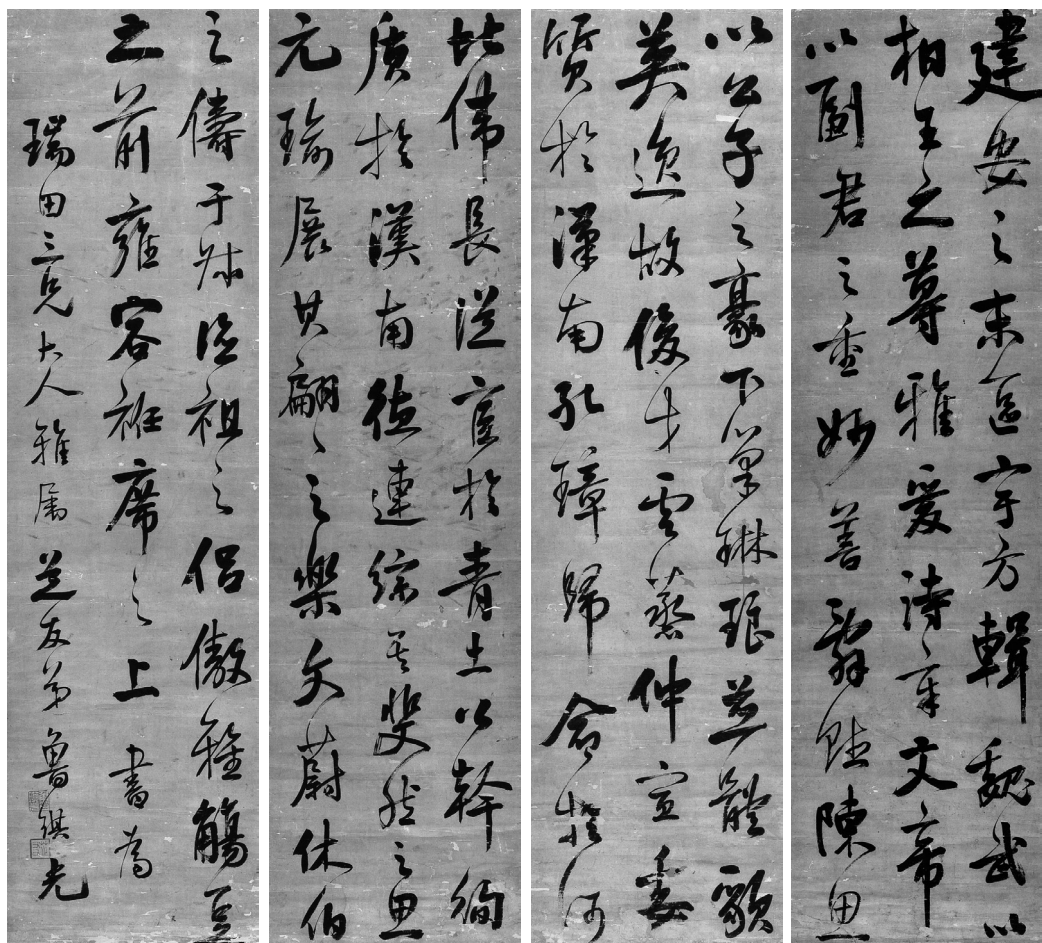 建安之末區宇方輯魏武以
相王之尊雅愛詩章文帝
以副君之重妙善辭賦陳思
以公子之豪下筆琳琅並體貌
英逸故俊才雲蒸仲宣委
質於漢南孔璋歸命於河
北偉長從宦於青土公幹徇
質於漢南德璉綜其斐然之思
元瑜展其翩々之樂文蔚休伯
之儔于叔德祖之侶傲雅觴豆
之前雍容衽席之上 書為
瑞田三兄大人雅屬 芝友弟魯琪光